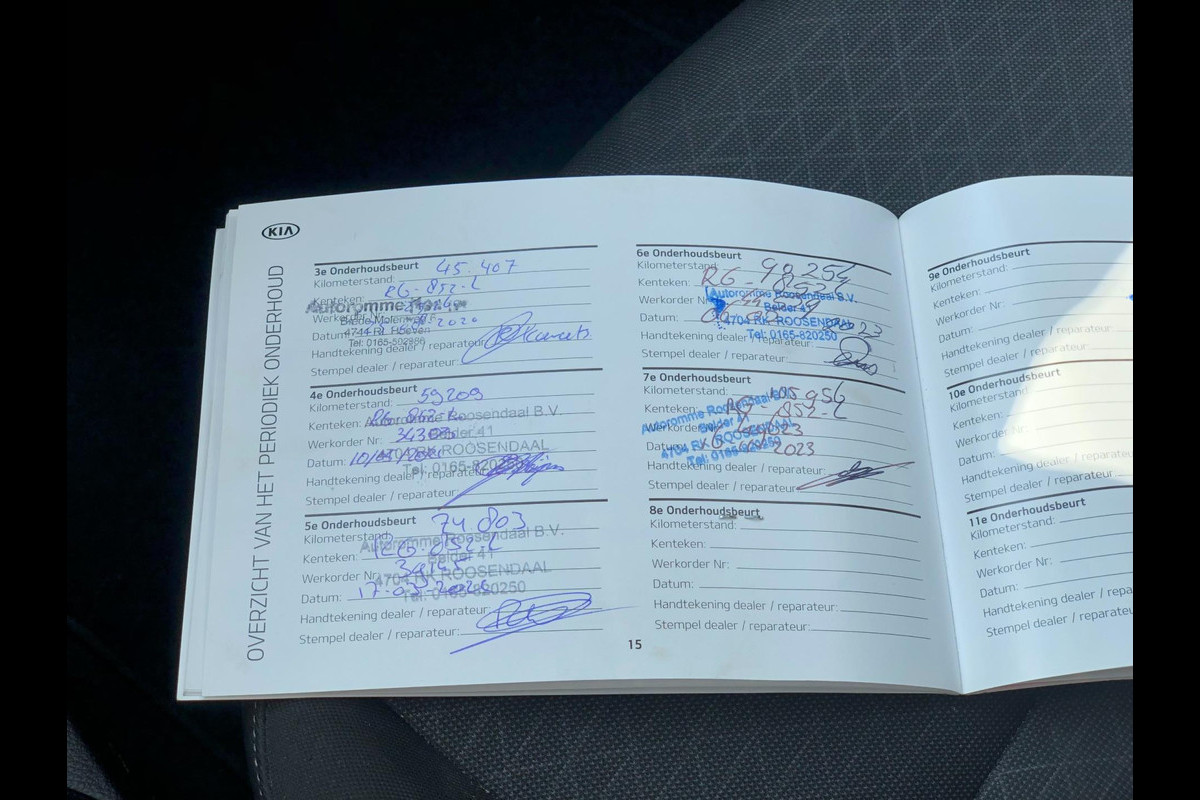 KIA
OVERZICHT VAN HET PERIODIEK ONDERHOUD
3e Onderhoudsbeurt
Kilometerstand: 45.407
Kenteken: RG-852-L
Autoromme
Werkorder
Datum: 2020
4744 RL
Tel: 0165-502860
Handtekening dealer / reparateur:
Stempel dealer / reparateur:
4e Onderhoudsbeurt
Kilometerstand: 59209
Kenteken:
Autoromme Roosendaal B.V.
Werkorder Nr:
Belder 41
4704 RK ROOSENDAAL
Datum:
Tel: 0165-820250
Handtekening dealer / reparateur:
Stempel dealer / reparateur:
5e Onderhoudsbeurt
Kilometerstand: 74.803
Autoromme Roosendaal B.V.
Kenteken: RG-852-L
Belder 41
Werkorder Nr:
4704 RK ROOSENDAAL
Datum:
Tel: 0165-820250
Handtekening dealer / reparateur:
Stempel dealer / reparateur:
6e Onderhoudsbeurt
Kilometerstand: 98254
Kenteken: RG-852-L
Autoromme Roosendaal B.V.
Werkorder Nr:
Belder 41
Datum:
4704 RK ROOSENDAAL
Tel: 0165-820250
Handtekening dealer / reparateur:
Stempel dealer / reparateur:
7e Onderhoudsbeurt
Kilometerstand: 105956
Kenteken: RG-852-L
Autoromme Roosendaal B.V.
Werkorder
Belder 41
Datum: 2023
4704 RK ROOSENDAAL
Tel: 0165-820250
Handtekening dealer / reparateur:
Stempel dealer / reparateur:
8e Onderhoudsbeurt
Kilometerstand:
Kenteken:
Werkorder Nr:
Datum:
Handtekening dealer / reparateur:
Stempel dealer / reparateur:
15
9e Onderhoudsbeurt
Kilometerstand:
Kenteken:
Werkorder Nr:
Datum:
Handtekening dealer / reparateur:
Stempel dealer / reparateur:
10e Onderhoudsbeurt
Kilometerstand:
Kenteken:
Werkorder Nr:
Datum:
Handtekening dealer / reparateur:
Stempel dealer / reparateur:
11e Onderhoudsbeurt
Kilometerstand:
Kenteken:
Werkorder Nr:
Datum:
Handtekening dealer / repara
Stempel dealer / reparateur: